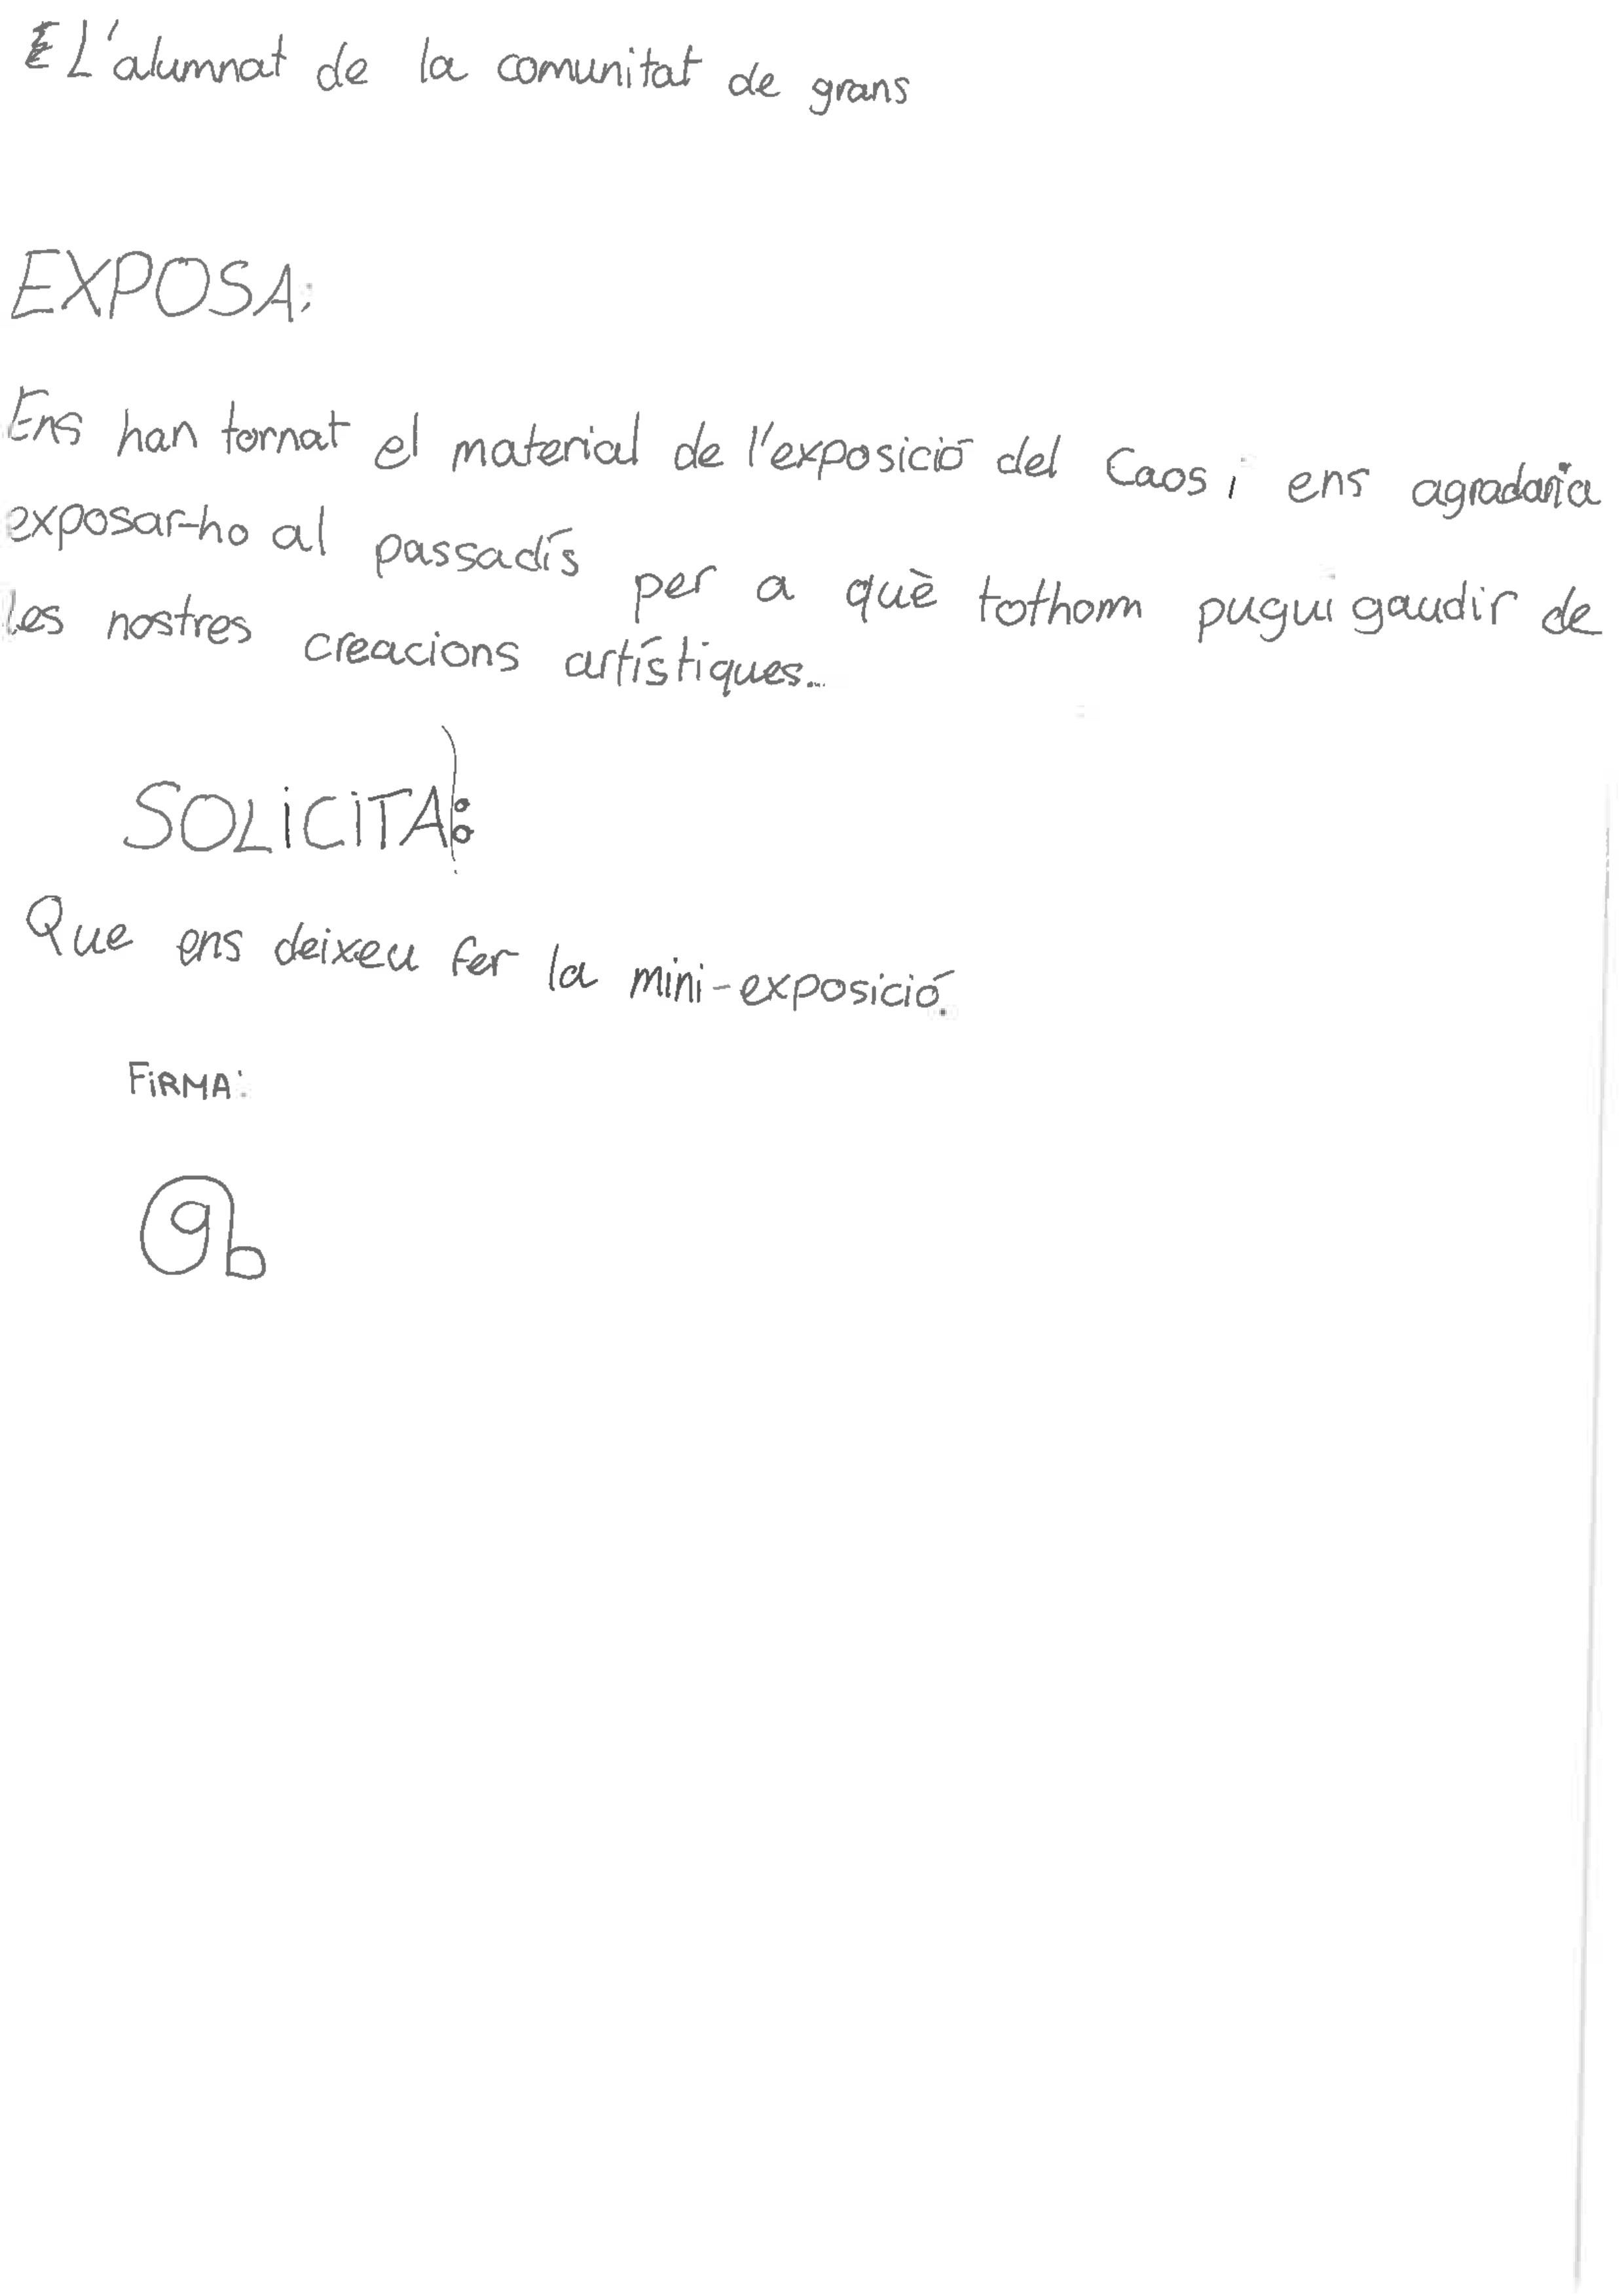 L'alumnat de la comunitat de grans
EXPOSA:
Ens han tornat el material de l'exposició del Caos i ens agradaria
exposar-ho al passadís per a què tothom pugui gaudir de
les nostres creacions artístiques...
SOLICITA:
Que ens deixeu fer la mini-exposició.
FIRMA: